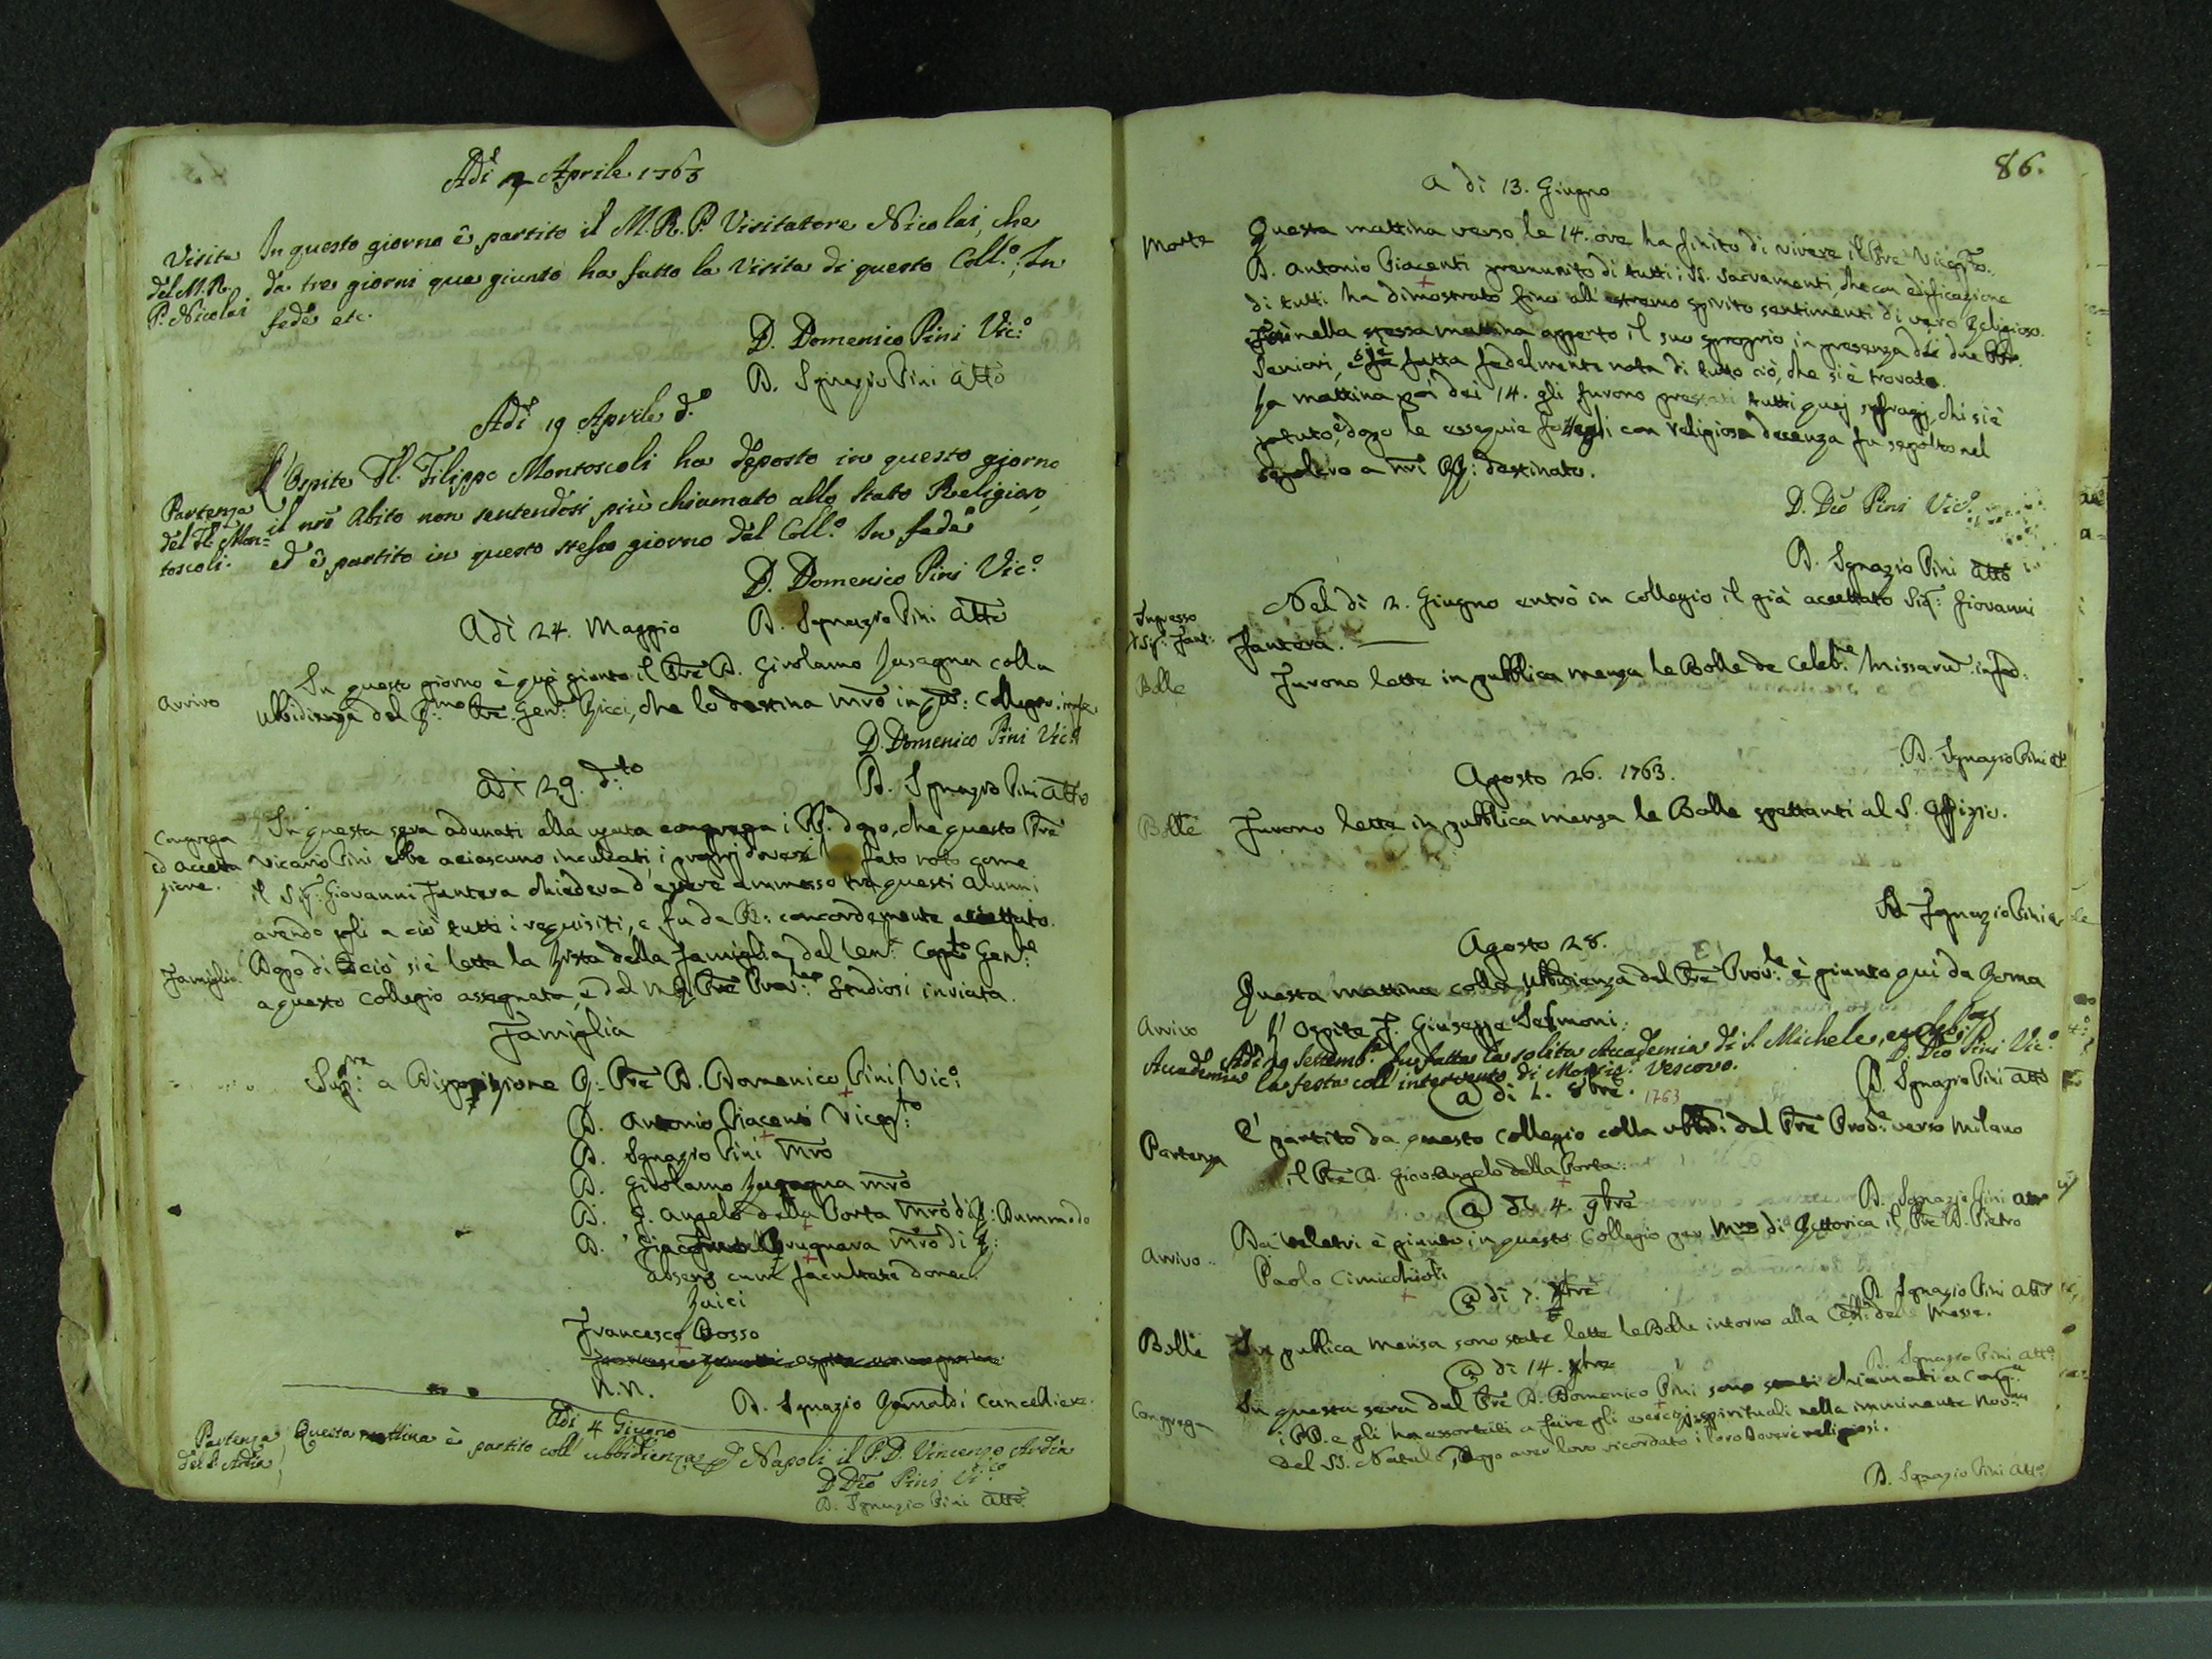 Adì 7 Aprile 1763
Visita
del M.R.
P. Nicolai
In questo giorno è partito il M. R. P. Visitatore Nicolai, che
da tre giorni qua giunto ha fatto la Visita di questo Coll.º; In
fede etc.
D. Domenico Pini Vic.º
D. Ignazio Pini Att.º
Adì 19 Aprile d.º
Partenza
del Fl. Mon=
toscoli.
L'Ospite Fl. Filippo Montoscoli ha deposto in questo giorno
il nr̃o Abito non sentendosi più chiamato allo stato Religioso,
ed è partito in questo stesso giorno dal Coll.º In fede
D. Domenico Pini Vic.º
D. Ignazio Pini Att.º
Adì 24. Maggio
Arrivo
In questo giorno è quà giunto il Pr̃e D. Girolamo Zusagna colla
Ubbidienza del R.mo Pr̃e Gen.le Ricci, che lo destina Mr̃o in Collegio:
D. Domenico Pini Vic.º
D. Ignazio Pini Att.º
adi 29. d.to
Congrega
ed accetta
zione.
In questa sera adunati alla usata congrega i PP. dopo, che questo Pr̃e
Vicario Pini ebbe a ciascuno inculcati i proprj doveri fato noto come
il Sig.r Giovanni Fantera chiedeva d'essere ammesso tra questi alunni
avendo egli a ciò tutti i requisiti, e fu da PP: concordemente accettato.
Famiglia
Dopo di ciò si è letta la Lista della famiglia, dal Ven.e Cap.to Gen.le
a questo Collegio assegnata, e dal M.R. Pr̃e Prov.le Studiosi inviata.
Famiglia
Sup.re a Disposizione R. Pr̃e D. Domenico Pini Vic.º
D. Antonio Piacenti Vicep.to
D. Ignazio Pini Mr̃o
D. Girolamo Zusagna Mr̃o
D. G. Angelo della Porta Mr̃o di R: Dummodo
D. Giacomo Brugnara Mr̃o di R:
absens cum facultate donec.
Laici
Francesco Bosso
N.N.
D. Ignazio Gamaldi Cancelliere.
Adì 4 Giugno
Partenza
del P. Ardia
Questa mattina è partito coll' ubbidienza p Napoli il P. D. Vincenzo Ardia
D. Dco Pini Vi.co
D. Ignazio Pini Att.º
86.
a dì 13. Giugno
Morte
Questa mattina verso le 14. ore ha finito di vivere il Pr̃e Vicep.to
D. Antonio Piacenti premunito di tutti i SS. Sacramenti, che con edificazione
di tutti ha dimostrato fino all' estremo spirito sentimenti di vero Religioso.
nella stessa mattina apperto il suo proprio in presenza dei due PP.
Seniori, e si è fatta fedelmente nota di tutto ciò, che si è trovato.
La mattina poi dei 14. gli furono prestati tutti quej suffragj, chi si è
potuto, e dopo le essequie fattegli con religiosa decenza fu sepolto nel
sepolcro a nr̃i PP: destinato.
D. Dco Pini Vic.º
D. Ignazio Pini att.º
Ingresso
d Sig.r Fant:
Nel dì 2. Giugno entrò in Collegio il già accettato Sig.r Giovanni
Fantera.
Bolle
Furono lette in pubblica mensa le Bolle de Celeb.ne Missarũ. in fed:
D. Ignazio Pini at.
Agosto 26. 1763.
Bolle
Furono lette in pubblica mensa le Bolle spettanti al S. Offizio.
D. Ignazio Pini a
Agosto 28.
Questa mattina colla Ubbidienza del Pr̃e Prov.le è giunto quì da Roma
Arrivo
l' Ospite F. Giuseppe Salmoni.
D. Dco Pini Vic.º
Accademia
Adì 29 Settemb.e fu fatta la solita Accademia di S. Michele,
la festa coll' intervento di Monsig.r Vescovo.
D. Ignazio Pini att.º
@ di 2. 8bre. 1763
Partenza
E' partito da questo Collegio colla ubbid: del Pr̃e Prov.le verso Milano
il Pr̃e D. Gio: Angelo della Porta.
D. Ignazio Pini att.º
@ di 4. 9bre
Arrivo
Da Veletri è giunto in questo Collegio per Mr̃o di Rettorica il Pr̃e D. Pietro
Paolo Cimicchioli
D. Ignazio Pini Att.º
@ di 7. Xbre
Bolle
In publica mensa sono state lette le Bolle intorno alla Celeb: dele Messe.
D. Ignazio Pini Att.º
@ di 14. Xbre
Congrega
In questa sera dal Pr̃e D. Domenico Pini sono stati chiamati a Cong.a
i PP. e gli ha essortati a fare gli esercizj spirituali nella imminente Nov.na
del SS. Natale, dopo aver loro ricordato i loro doveri religiosi.
D. Ignazio Pini Att.º